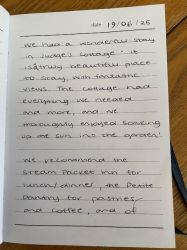 date 19/06/25
We had a wonderful stay
in Judge's Cottage - it
is a truly beautiful place
to stay, with fantastic
views. The cottage had
everything we needed
and more, and we
thoroughly enjoyed soaking
up the sun into the garden!
We recommend the
Steam Packet Inn for
lunch/dinner, the Petite
Pantry for pastries
and coffee, and of